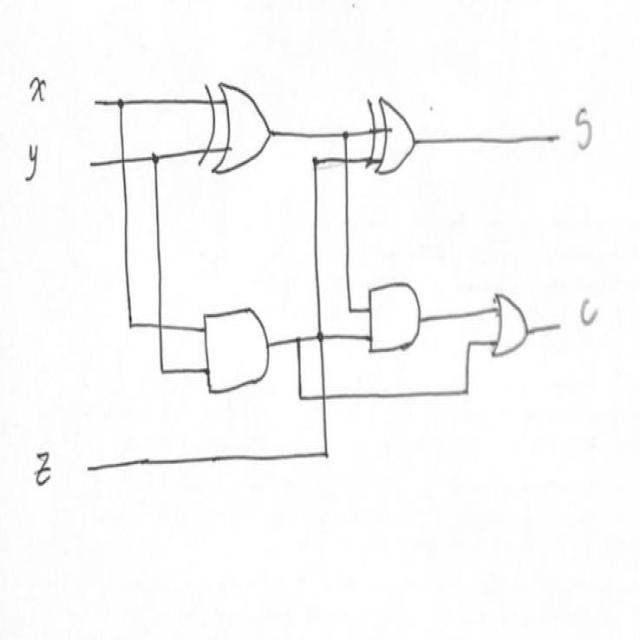 x
y
S
C
z